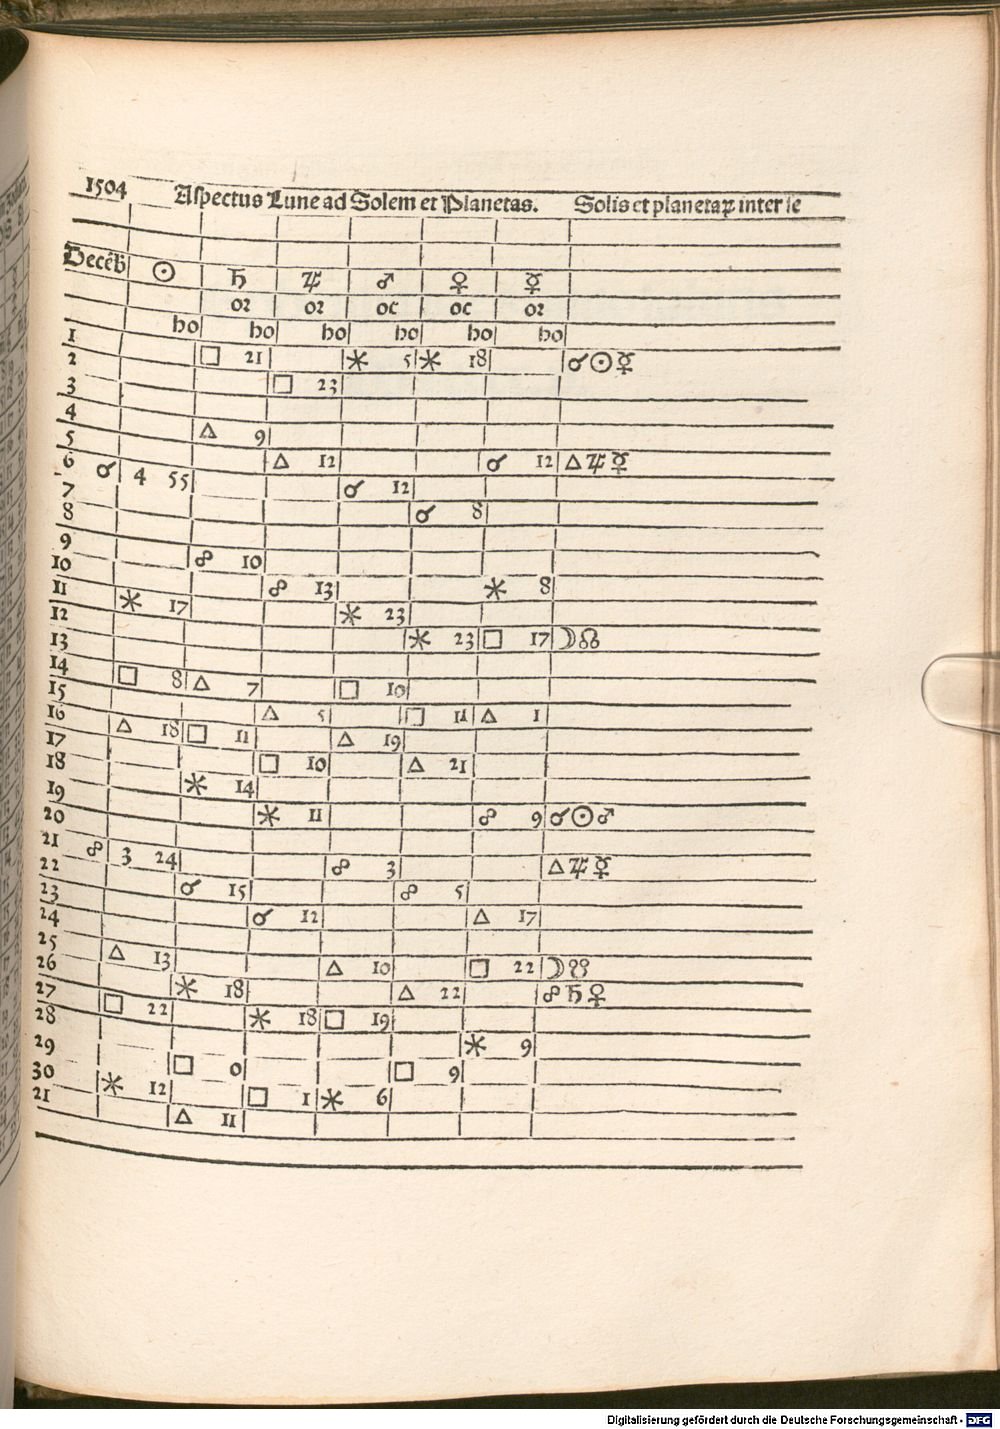 1504 Aspectus Lune ad Solem et Planetas. Solis et planetaꝝ inter se
Decēb ☉ ♄ ♃ ♂ ♀ ☿
oꝛ oꝛ oc oc oꝛ
ho ho ho ho ho ho
1 □ 21 ✶ 5 ✶ 18 ☌ ☉ ☿
2 □ 23
3
4 △ 9
5 △ 12 ☌ 12 △ ♃ ☿
6 ☌ 4 55 ☌ 12
7 ☌ 8
8
9 ☍ 10
10 ☍ 13 ✶ 8
11 ✶ 17 ✶ 23
12 ✶ 23 □ 17 ☽ ☊
13
14 □ 8 △ 7 □ 10
15 △ 5 □ 11 △ 1
16 △ 18 □ 11 △ 19
17 □ 10 △ 21
18 ✶ 14
19 ✶ 11 ☍ 9 ☌ ☉ ♂
20
21 ☍ 3 24 ☍ 3 △ ♃ ☿
22 ☌ 15 ☍ 5
23 ☌ 12 △ 17
24
25 △ 13 △ 10 □ 22 ☽ ☋
26 ✶ 18 △ 22 ☍ ♄ ♀
27 □ 22 ✶ 18 □ 19
28 ✶ 9
29 □ 0 □ 9
30 ✶ 12 □ 1 ✶ 6
21 △ 11
Digitalisierung gefördert durch die Deutsche Forschungsgemeinschaft - DFG